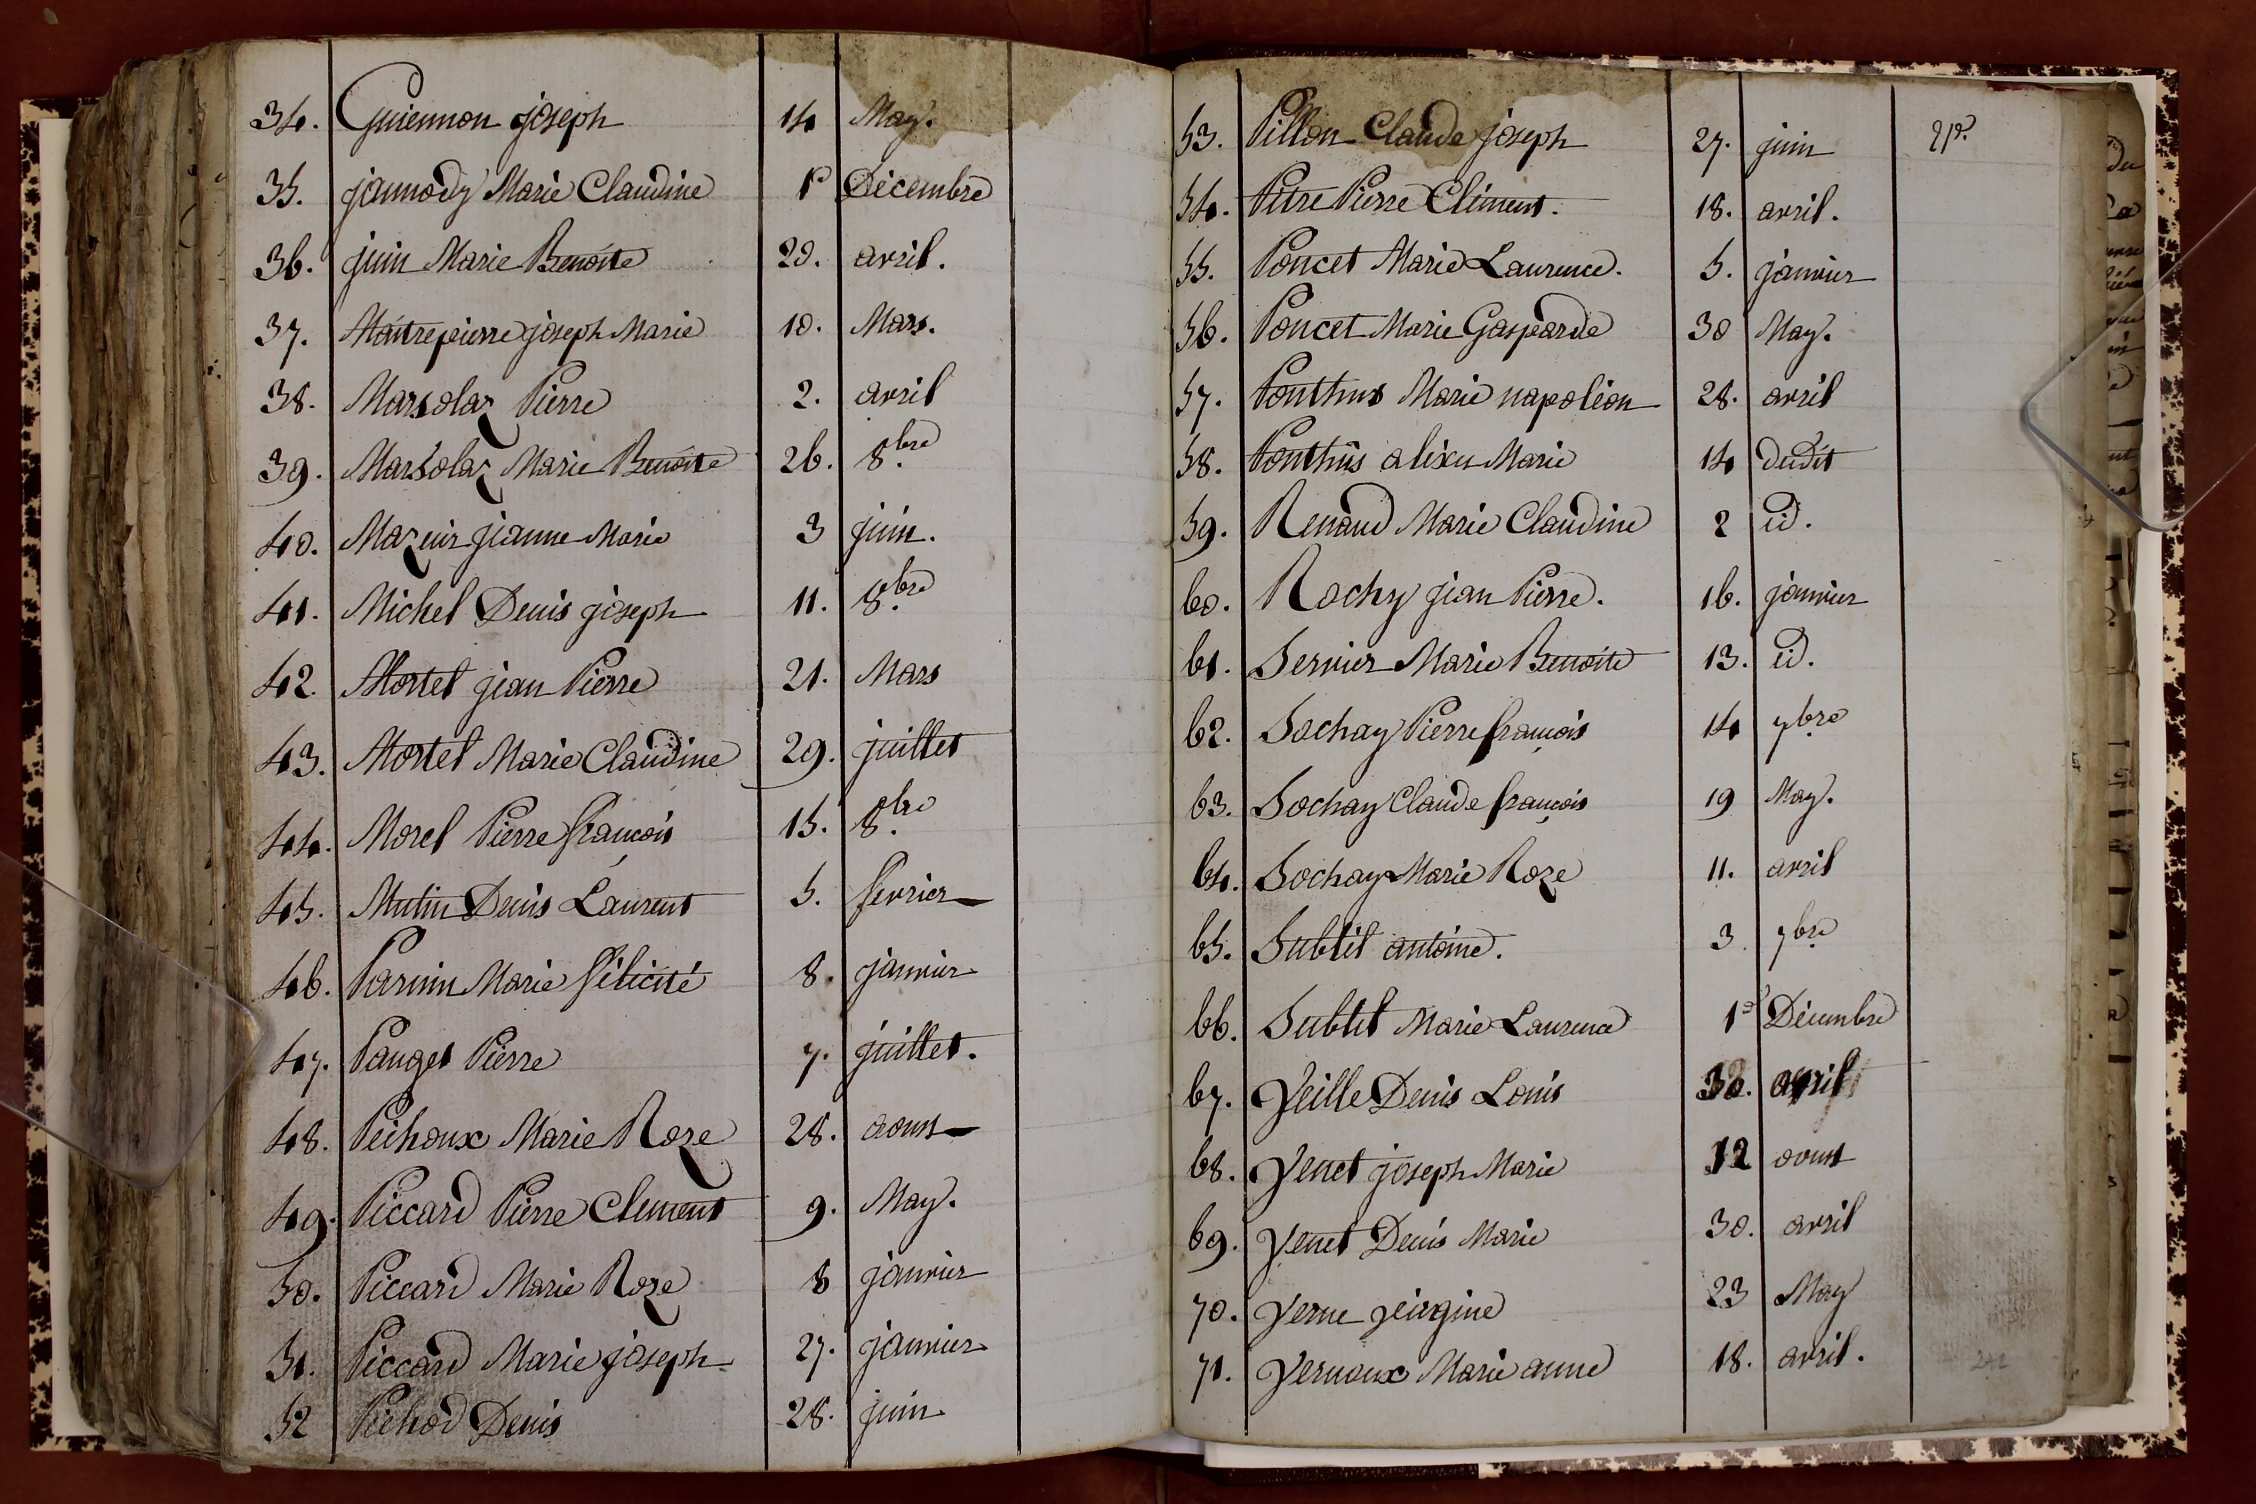 34. Guiennon joseph 14 May.
35. jannody Marie Claudine 1er Décembre
36. juin Marie Benoite 20. avril.
37. Maitrepierre joseph Marie 10. Mars.
38. Marsolaz Pierre 2. avril
39. Marsolaz Marie Benoite 26. 8bre
40. Mazuir jeanne Marie 3 juin.
41. Michel Denis joseph 11. 8bre
42. Mortel jean Pierre 21. Mars
43. Mortel Marie Claudine 29. juillet
44. Morel Pierre françois 15. 8bre
45. Mutin Denis Laurent 5. fevrier
46. Parmin Marie félicité 8. janvier
47. Panget Pierre 7. juillet.
48. Peihoux Marie Roze 28. aoust
49. Piccard Pierre Clement 9. May.
50. Piccard Marie Roze 8 janvier
51. Piccard Marie joseph 27. janvier
52 Piehod Denis 28. juin
53. Pillon Claude joseph 27. juin
54. Pitre Pierre Clément. 18. avril.
55. Poncet Marie Laurence. 5. janvier
56. Poncet Marie Gasparde 30 May.
57. Ponthus Marie napoléon 28. avril
58. Ponthus alixe Marie 14 dudit
59. Renaud Marie Claudine 2 id.
60. Rochy jean Pierre. 16. janvier
61. Servier Marie Benoite 13. id.
62. Sochay Pierre françois 14 7bre
63. Sochay Claude françois 19 May.
64. Sochay Marie Roze 11. avril
65. Subtil antoine. 3. 7bre
66. Subtil Marie Laurence 1er Décembre
67. Veille Denis Louis 30. avril
68. Venet joseph Marie 12 aoust
69. Venet Denis Marie 30. avril
70. Verne Virgine 23 May
71. Vernoux Marie anne 18. avril.